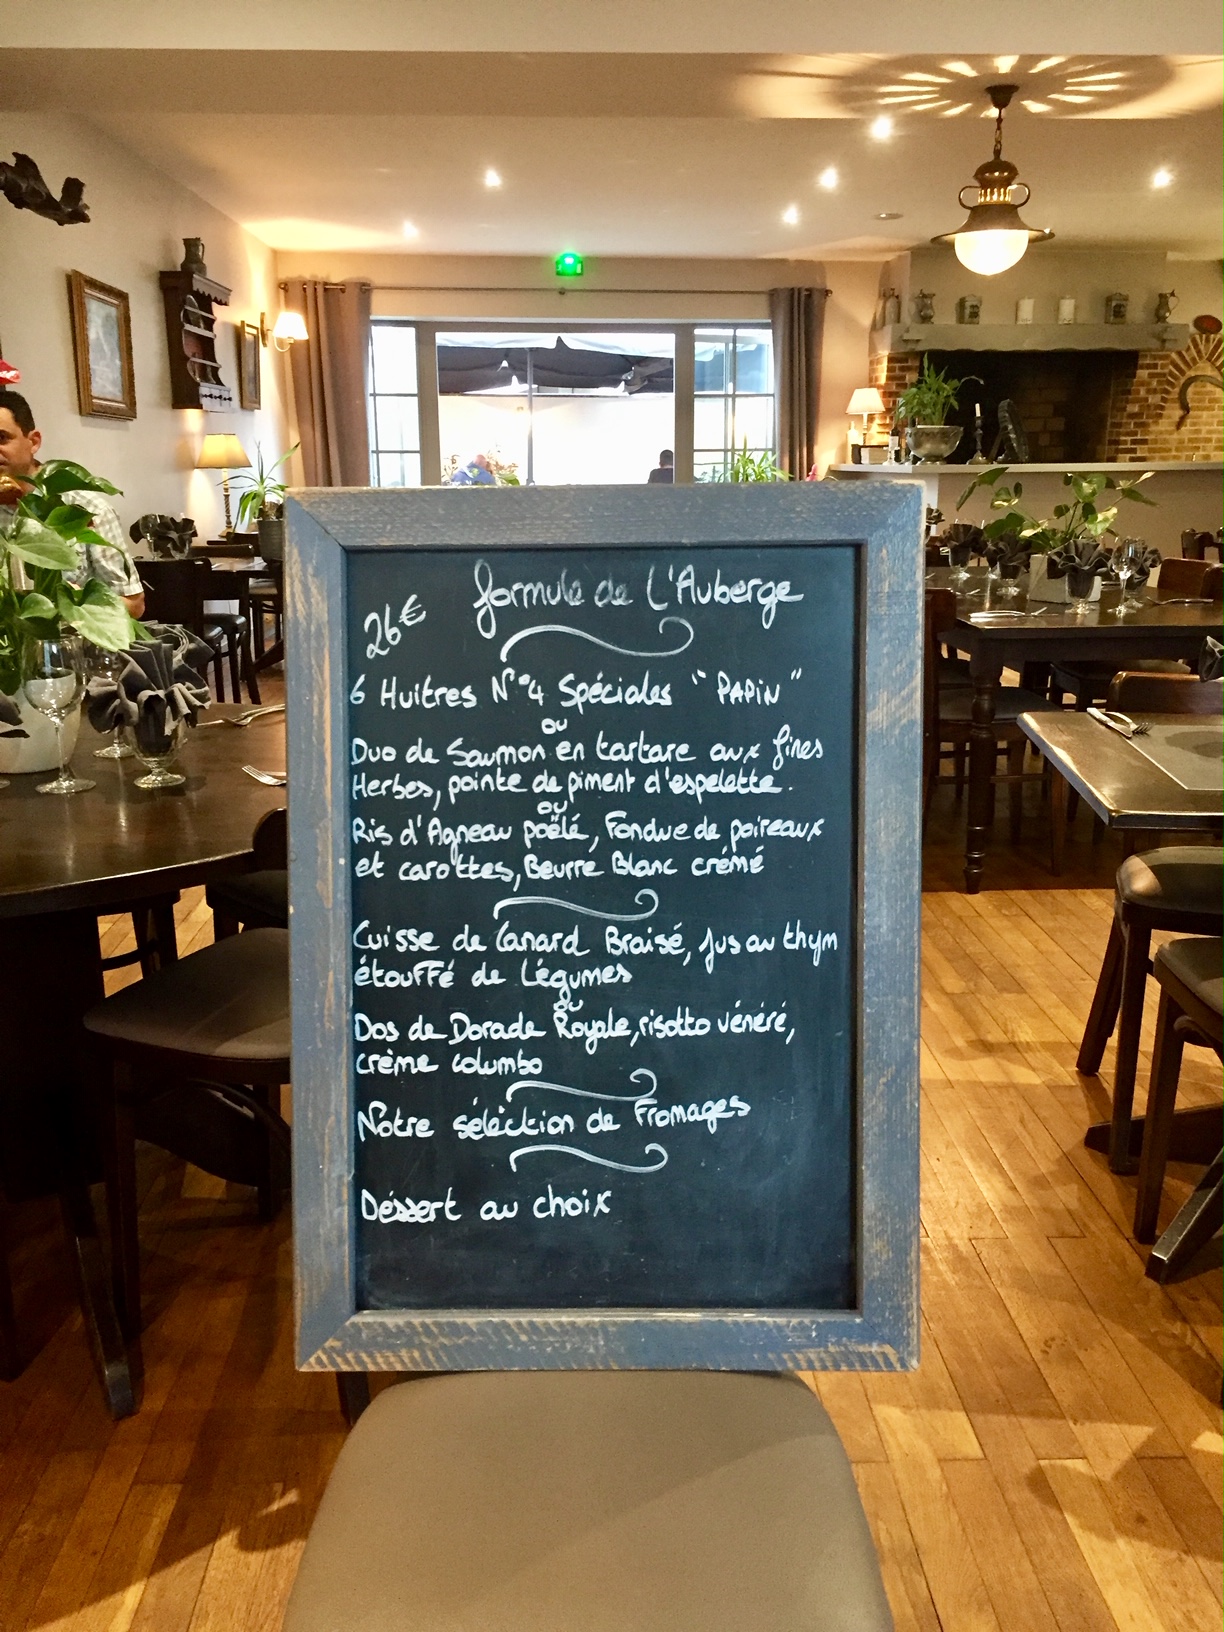 formule de L'Auberge
26€
6 Huitres N°4 Spéciales " PAPiN "
ou
Duo de Saumon en tartare aux fines
Herbes, pointe de piment d'espelette.
ou
Ris d'Agneau poëlé, Fondue de poireaux
et carottes, Beurre Blanc crémé
Cuisse de Canard Braisé, jus au thym
étouffé de Légumes
ou
Dos de Dorade Royale, risotto vénéré,
crème columbo
Notre séléction de Fromages
Déssert au choix